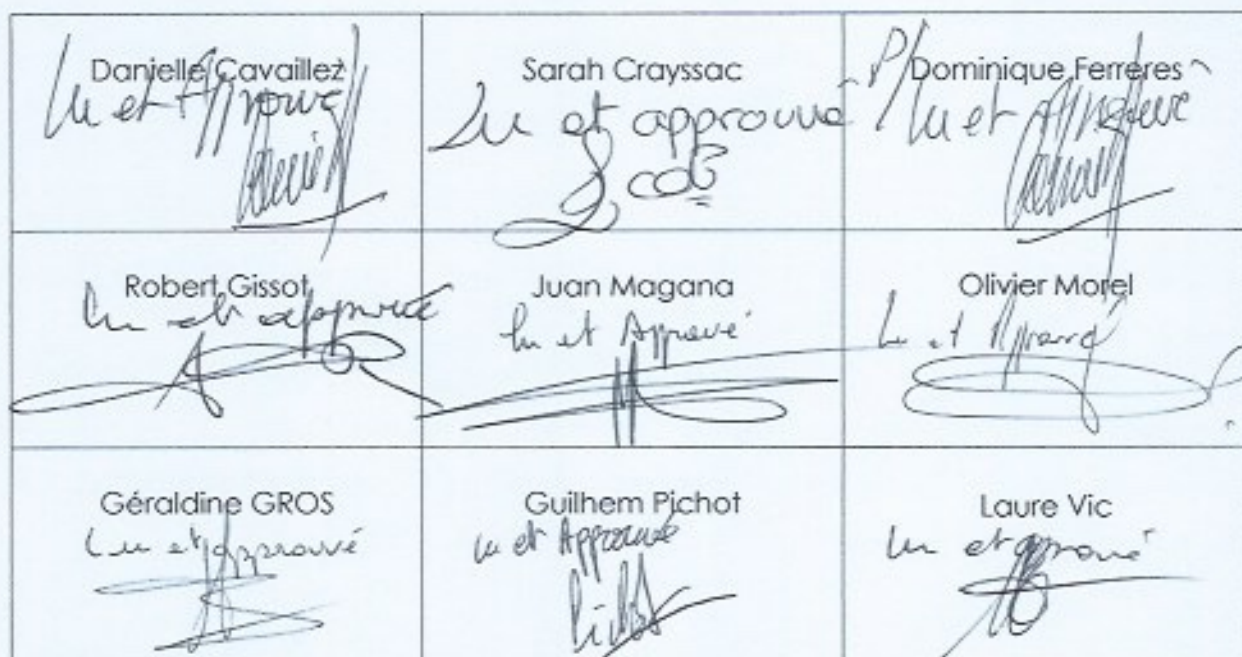 Danielle Cavaillez
Lu et Approuvé
Sarah Crayssac
Lu et approuvé
P/
Dominique Ferreres
Lu et Approuvé
Robert Gissot
Lu et approuvé
Juan Magana
Lu et Approuvé
Olivier Morel
Lu et Approuvé
Géraldine GROS
Lu et approuvé
Guilhem Pichot
Lu et Approuvé
Pichot
Laure Vic
Lu et approuvé